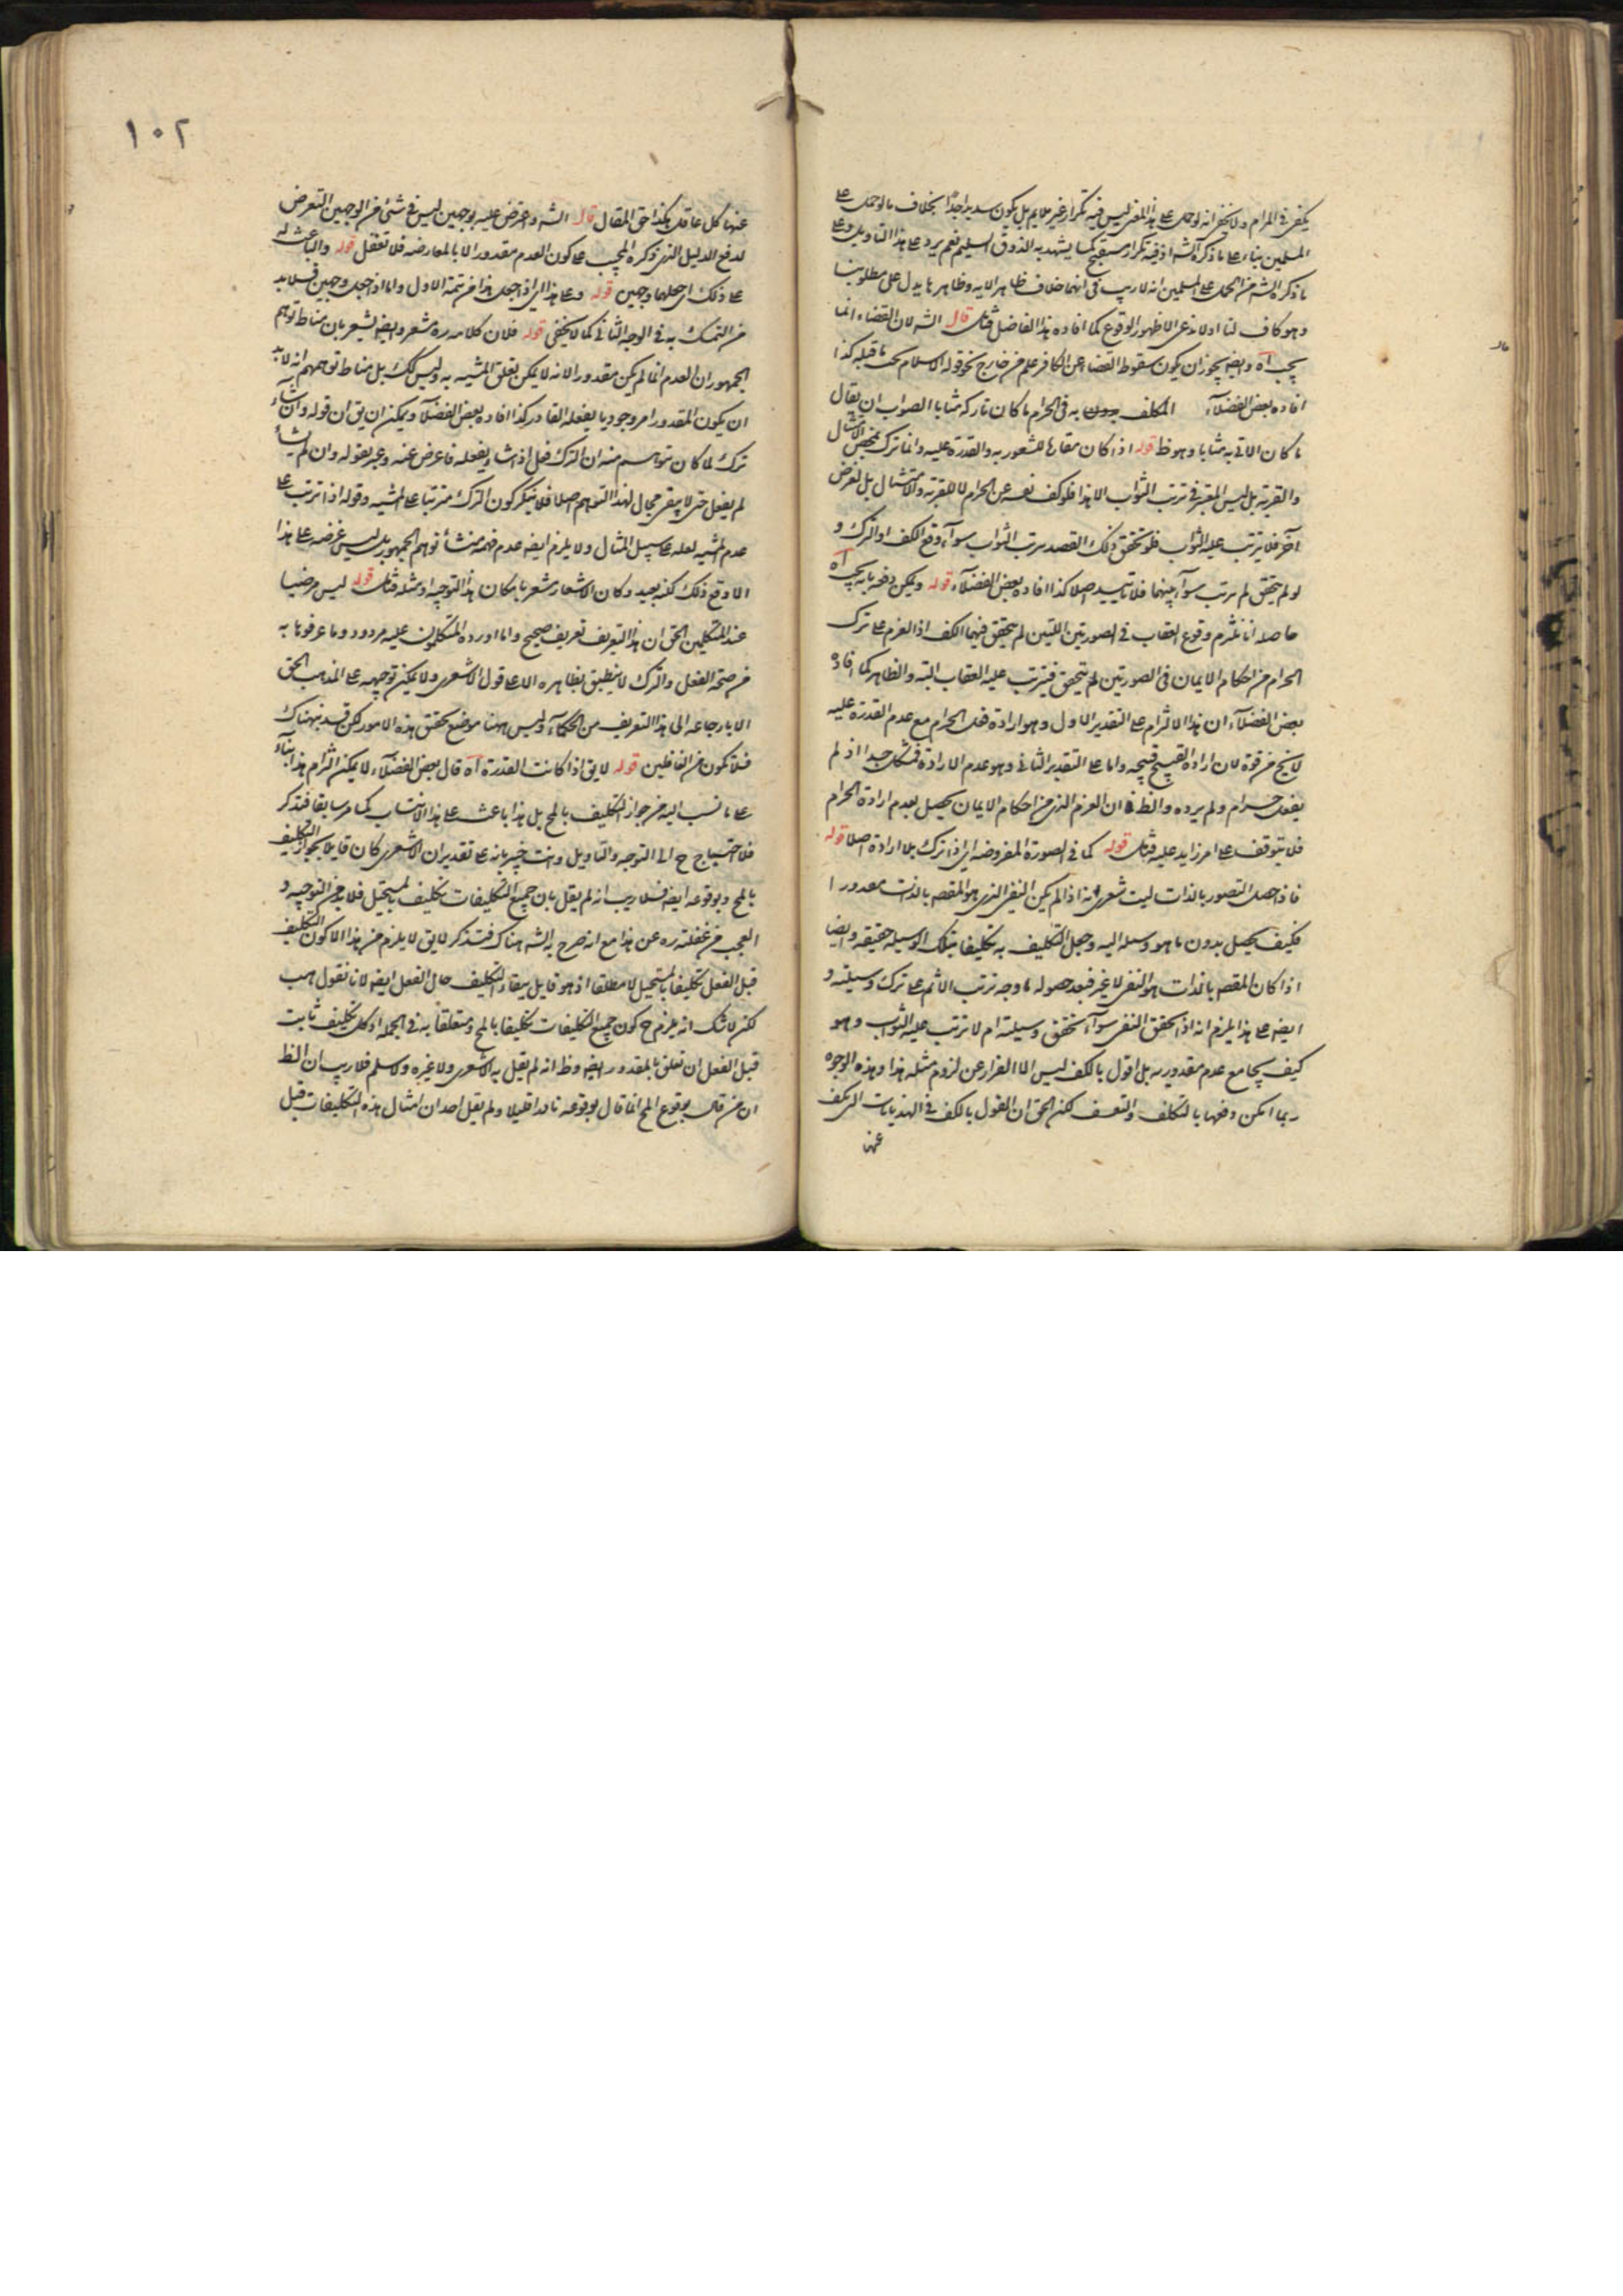 يكفى فى المرام ولا يخفى انه لو حمل على هذا المعنى ليس فيه تكرار غير ملايم بل يكون سديدا جدا بخلاف ما لو حمل على
المسلمين بناء على ما ذكره الشه اذ فيه تكرار مستقبح كما يشهد به الذوق السليم نعم يرد على هذا التاويل وعلى
ما ذكره الشه من الحمل على المسلمين انه لا ريب فى انهما خلاف ظاهر الايه وظاهرها يدل على مطلوبنا
وهو كاف لنا اذ لا ندعى الا ظهور الوقوع كما افاده هذا الفاضل فتأمل قال الشه لان القضاء انما
يجب آه وايضه يجوز ان يكون سقوط القضاء عن الكافر علم من خارج نحو قوله الاسلام يجب ما قبله كذا
افاده بعض الفضلاء المكلف به فى الحرام ما كان تاركه مثابا الصواب ان يقال
ما كان الاتى به مثابا وهو ظ قوله اذا كان مقارنا للشعور به والقدرة عليه وانما ترك بمحض الامتثال
والقربة بل ليس المعتبر فى ترتب الثواب الا هذا فلو كف نفسه عن الحرام لا للقربة والامتثال بل لغرض
آخر فلا يترتب عليه الثواب فلو تحقق ذلك القصد يترتب الثواب سواء وقع الكف او الترك و
لو لم يتحقق لم يترتب سواء بينهما فلا تاييد اصلا كذا افاده بعض الفضلاء قوله ويمكن دفعه بانه يجب آه
حاصله انا نلتزم وقوع العقاب فى الصورتين اللتين لم يتحقق فيهما الكف اذ العزم على ترك
الحرام من احكام الايمان فى الصورتين لم يتحقق فيترتب عليه العقاب البته والظاهر كما افاده
بعض الفضلاء ان هذا الالتزام على التقدير الاول وهو ارادة فعل الحرام مع عدم القدرة عليه
لا يخ من قوة لان ارادة القبيح قبيحه واما على التقدير الثانى وهو عدم الارادة فمشكل جدا اذ لم
يفعل حرام ولم يرده والظ ان العزم الذى من احكام الايمان يحصل بعدم ارادة الحرام
فلا يتوقف على امر زايد عليه فتأمل قوله كما فى الصورة المفروضه اى اذا ترك بلا ارادة اصلا قوله
فاذا حصل المتصور بالذات ليت شعرى انه اذا لم يكن النفى الذى هو المقصه بالذات مقدورا
فكيف يحصل بدون ما هو وسيله اليه وجعل التكليف به تكليفا بتلك الوسيله حقيقه وايضا
اذا كان المقصه بالذات هو النفى لا غير فبعد حصوله ما وجه ترتب الاثم على ترك وسيلته و
ايضه على هذا يلزم انه اذا تحقق النفى سواء تحقق وسيلته ام لا ترتب عليه الثواب وهو
كيف يجامع عدم مقدوريته بل اقول بالكف ليس الا الفرار عن لزوم مثله هذا وهذه الوجوه
ربما امكن دفعها بالتكلف والتعسف لكن الحق ان القول بالكف من الهذيانات التى يكف
عنها
١٠٢
عنها كل عاقل هكذا حق المقال قال الشه واعترض عليه بوجهين ليس فى شئ من الوجهين التعرض
لدفع الدليل الذى ذكره المجيب على كون العدم مقدورا الا بالمعارضه فلا تغفل قوله والباعث له
على ذلك اى جعلهما وجهين قوله وعلى هذا اى اذا جعل هذا من تتمة الاول واما اذا جعل وجهين فلا بد
من التمسك به فى الوجه الثانى كما لا يخفى قوله فلان كلامه ره مشعر وايضه يشعر بان مناط توهم
الجمهور ان العدم انما لم يكن مقدورا لانه لا يمكن تعلق المشيه به وليس كك بل مناط توهمهم انه لا بد
ان يكون المقدور امر وجوديا يفعله القادر كذا افاده بعض الفضلاء ويمكن ان يق ان قوله وان شاء
ترك لما كان توهم منه ان الترك فعل اذا شاء يفعله فاعرض عنه وعبر بقوله وان لم يشأ
لم يفعل حتى لا يبقى مجال لهذا التوهم اصلا فلا ينكر كون الترك مترتبا على المشيه وقوله اذا ترتب على
عدم المشيه لعله على سبيل المثال ولا يلزم ايضه عدم فهمه منشأ توهم الجمهور بل ليس غرضه على هذا
الا وقع ذلك لكنه بعيد وكان الاشعار مشعر بامكان هذا التوجيه او مثله فتأمل قوله ليس مرضيا
عند المتكلمين الحق ان هذا التعريف تعريف صحيح واما اورده المتكلمون عليه مردود وما عرفوها به
من صحة الفعل والترك لا ينطبق بظاهره الا على قول الاشعرى ولا يمكن توجيهه على المذهب الحق
الا بارجاعه الى هذا التعريف من الحكماء وليس ههنا موضع تحقق هذه الامور لكن قد نبهناك
فلا تكون من الغافلين قوله لا يق اذا كانت القدرة آه قال بعض الفضلاء لا يمكن التزام هذا بناء
على ما نسب اليه من جواز التكليف بالمح بل هذا باعث على هذا الانتساب كما مر سابقا فتذكر
فلا احتياج ح الى التوجيه والتاويل وانت خبير بانه على تقدير ان الاشعرى كان قايلا بجواز التكليف
بالمح وبوقوعه ايضه فلا ريب انه لم يقل بان جميع التكليفات تكليف بالمستحيل فلا بد من التوجيه و
العجب من غفلته ره عن هذا مع انه صرح به الشه هناك فتذكر لا يق لا يلزم من هذا الا كون التكليف
قبل الفعل تكليفا بالمستحيل لا مطلقا اذ هو قايل ببقاء التكليف حال الفعل ايضه لانا نقول هب
لكن لا شك انه يلزم ح كون جميع التكليفات تكليفا بالمح ومتعلقا به فى الجمله اذ كل تكليف ثابت
قبل الفعل ان تعلق بالمقدور ايضه وظ انه لم يقل به الاشعرى ولا غيره ولو سلم فلا ريب ان الظ
ان من قال بوقوع المح انما قال بوقوعه نادرا قليلا ولم يقل احد ان امثال هذه التكليفات قبل